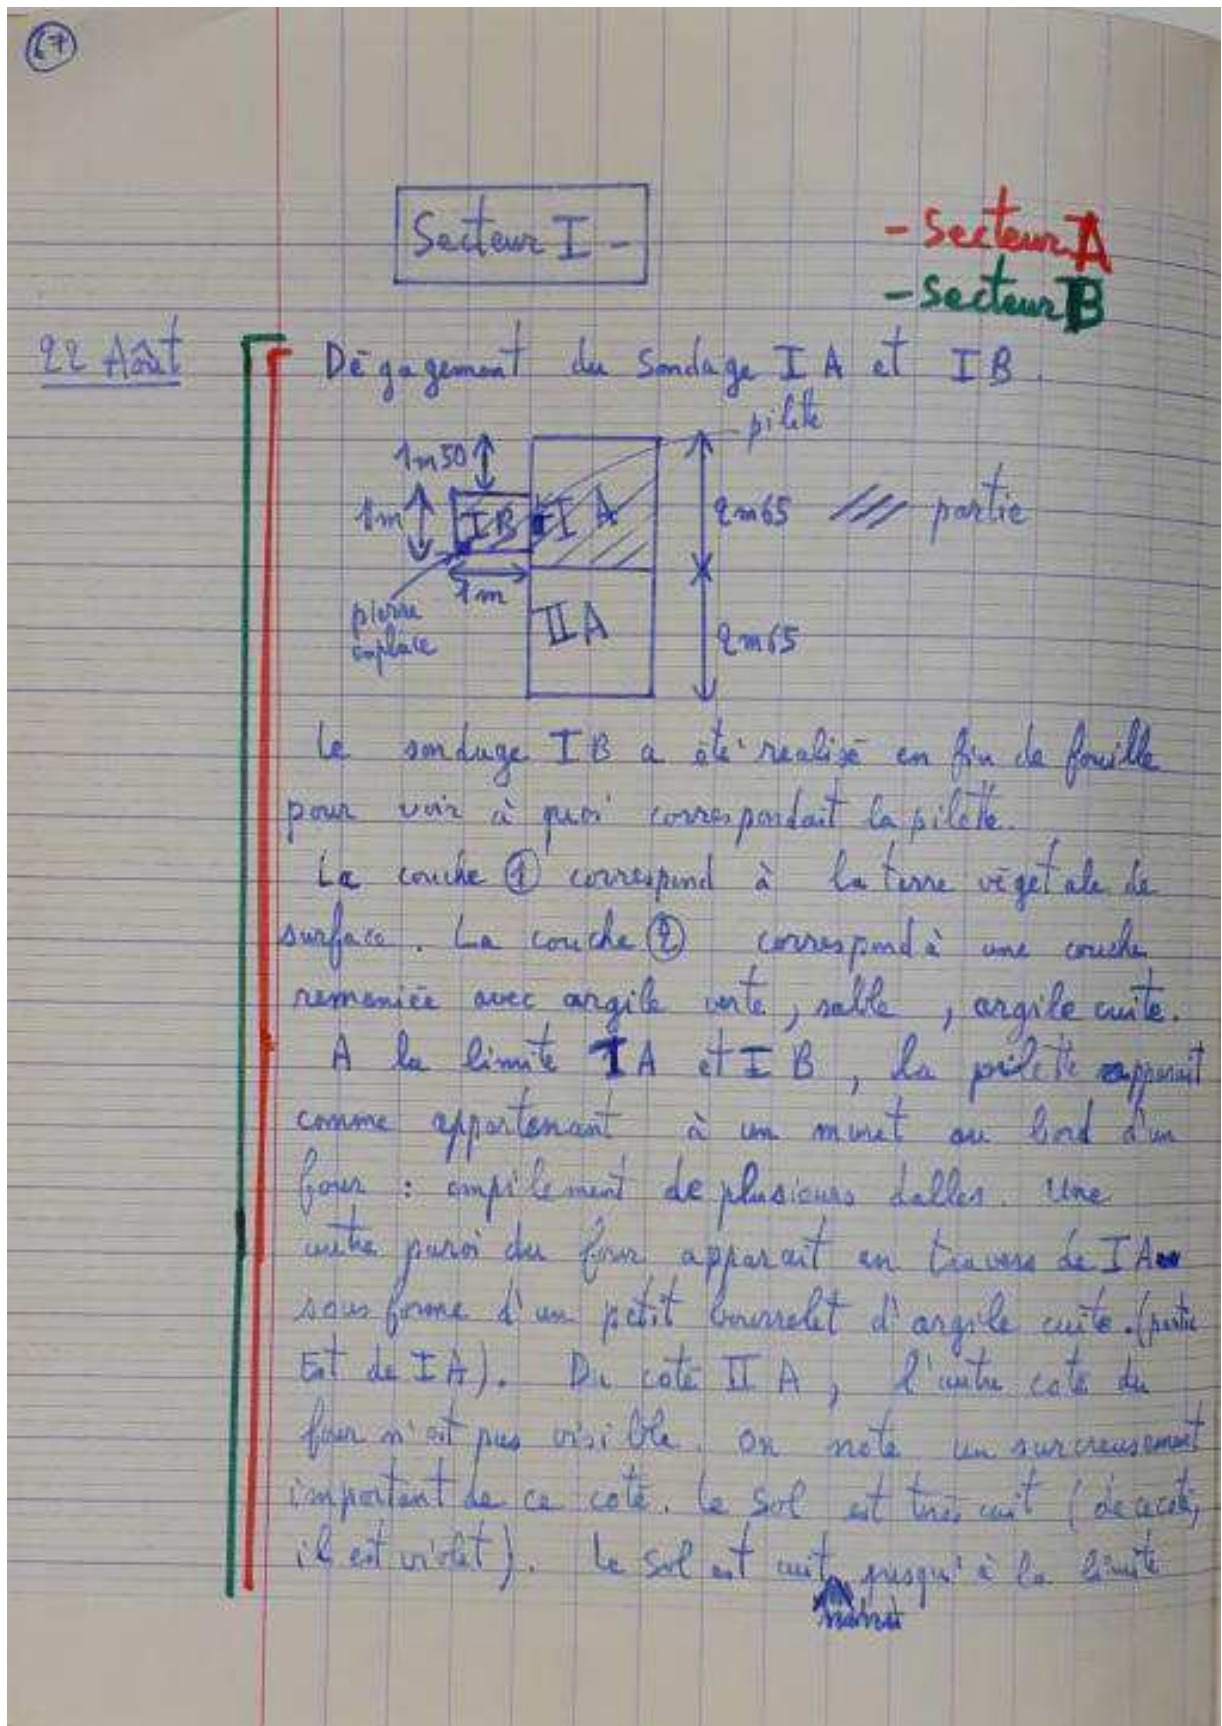 67
Secteur I -
- Secteur A
- Secteur B
22 Août
Dégagement du Sondage I A et I B.
pilette
1m50
1m
I B
I A
2m65
/// partie
1m
pierre
en place
II A
2m65
Le sondage I B a été réalisé en fin de fouille
pour voir à quoi correspondait la pilette.
La couche ① correspond à la terre végétale de
surface. La couche ② correspond à une couche
remaniée avec argile verte, sable, argile cuite.
A la limite I A et I B, la pilette apparait
comme appartenant à un muret au bord d'un
four : empilement de plusieurs dalles. Une
autre paroi du four apparait en travers de I A
sous forme d'un petit bourrelet d'argile cuite. (partie
Est de I A). Du coté II A, l'autre coté du
four n'est pas visible. On note un surcreusement
important de ce coté. Le sol est très cuit (de ce coté,
il est violet). Le sol est cuit jusqu'à la limite